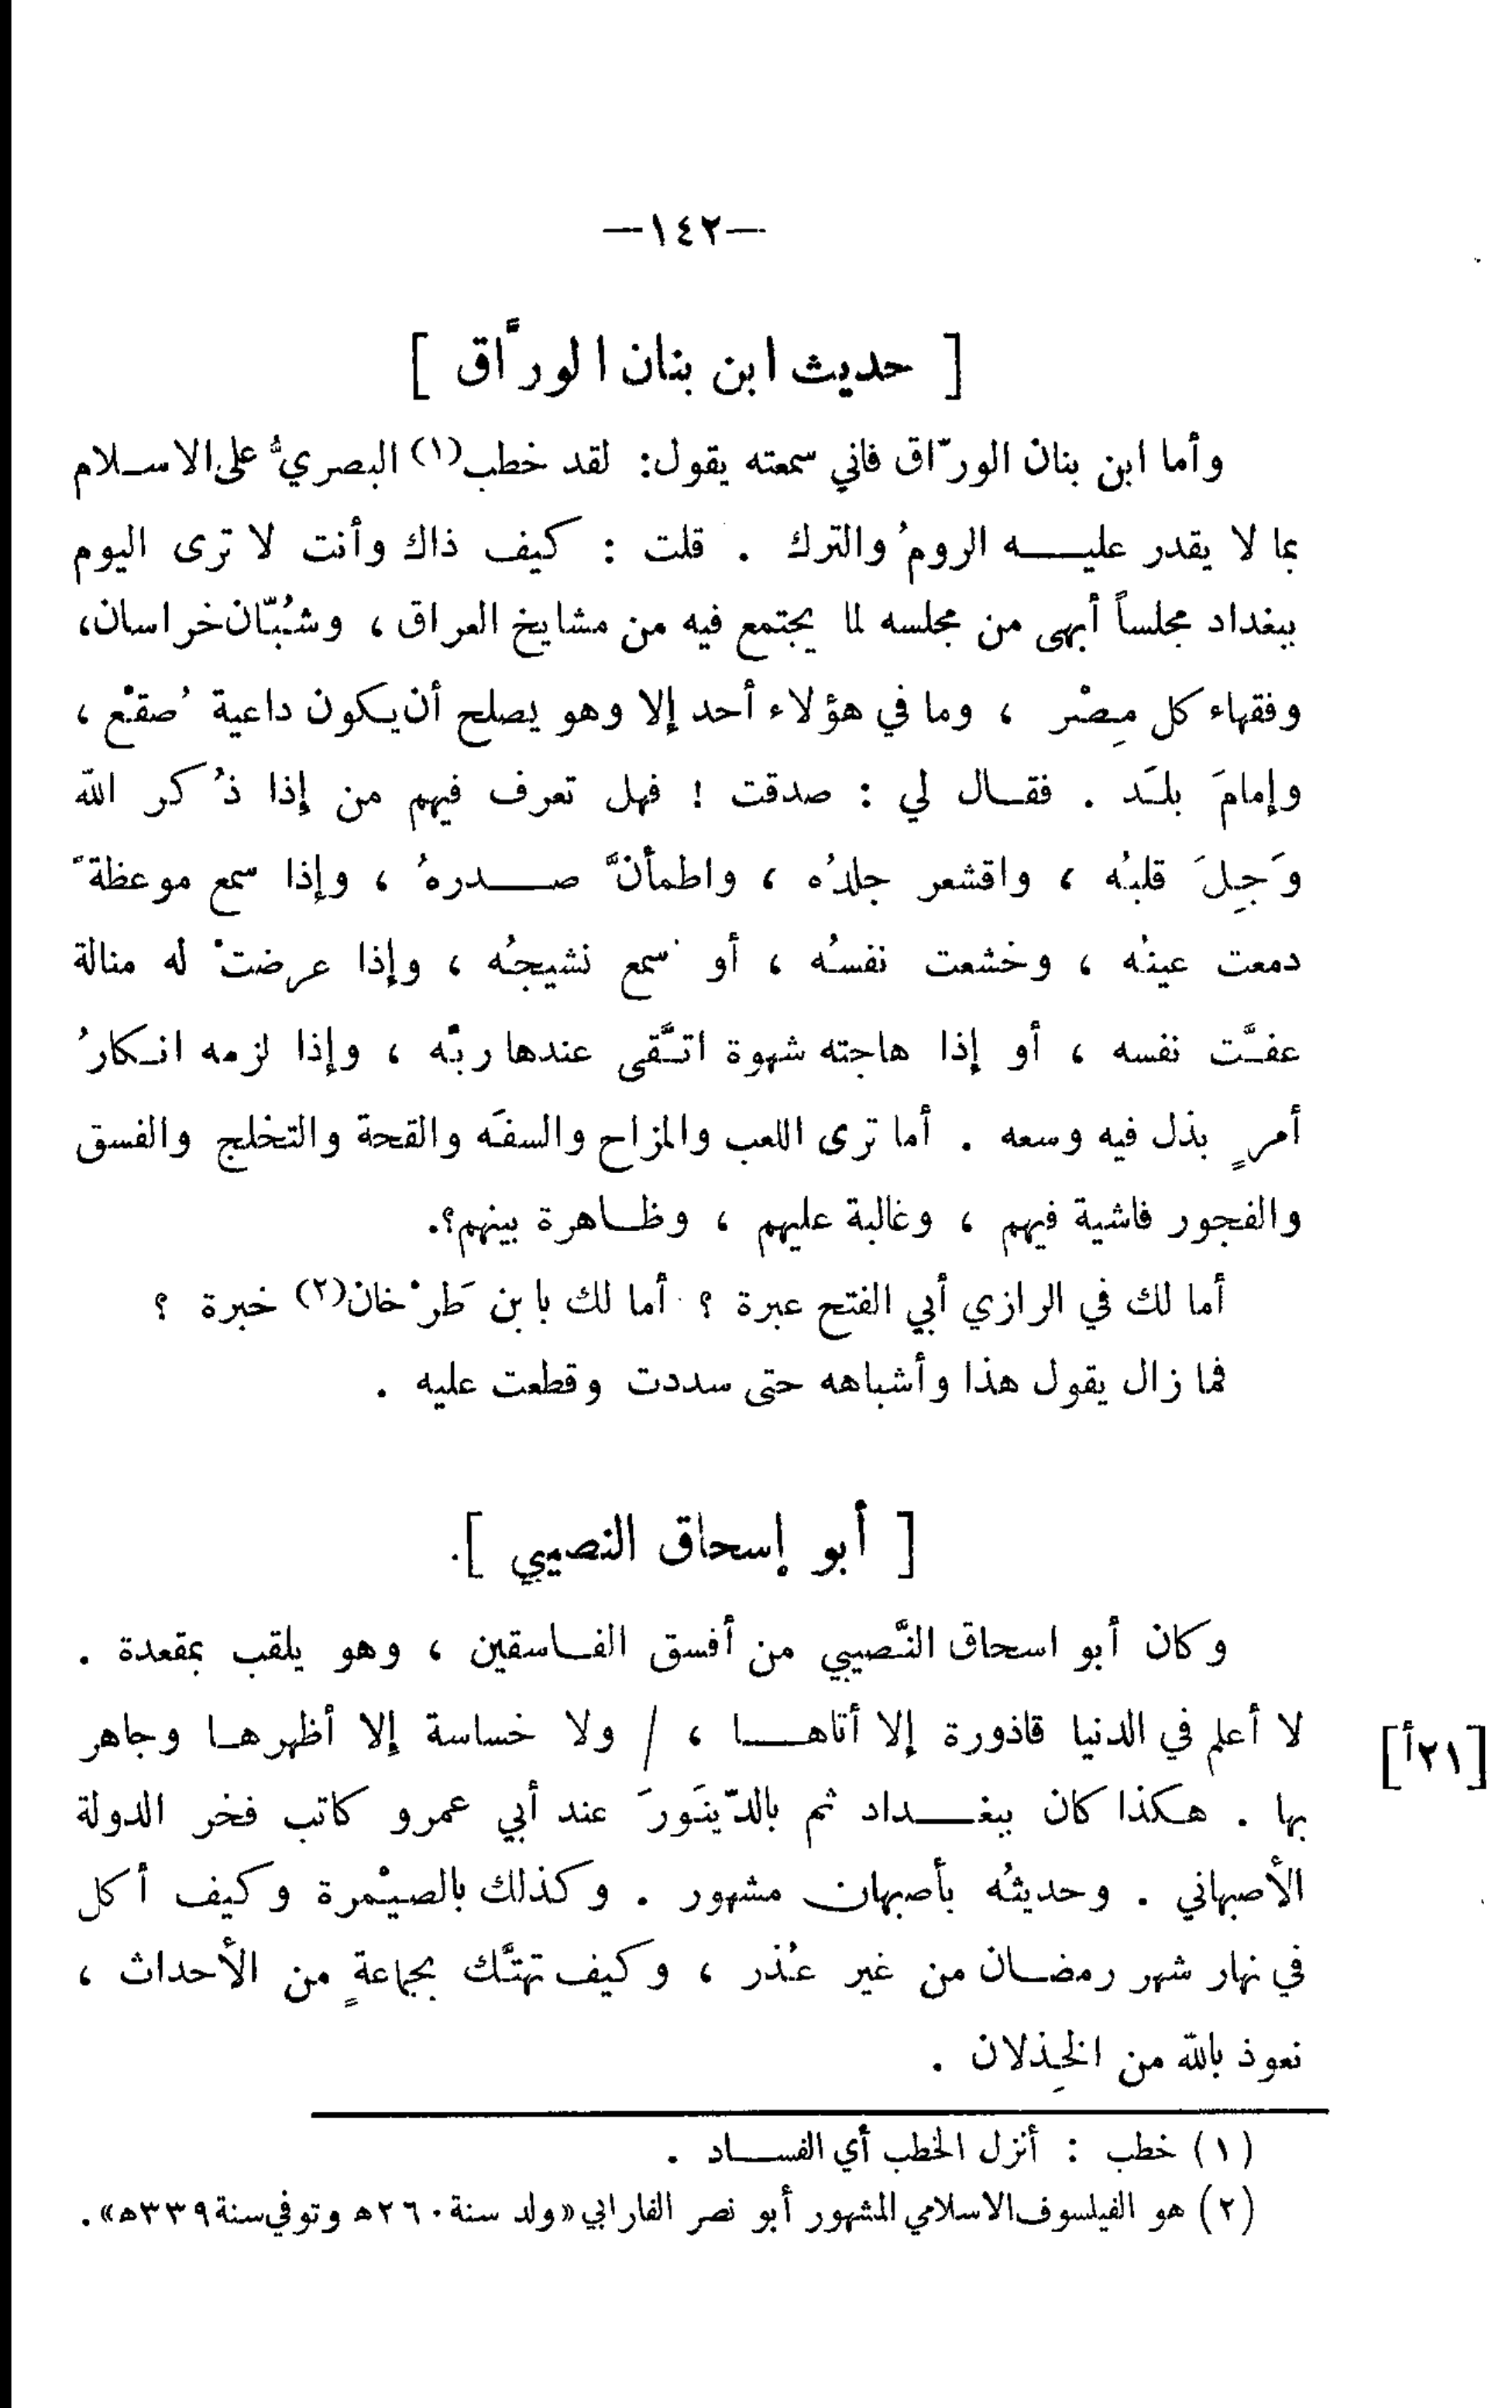 —١٤٢—
[ حديث ابن بنان الورَّاق ]
وأما ابن بنان الورّاق فاني سمعته يقول: لقد خطب(١) البصريُّ على الاسلام
بما لا يقدر عليه الرومُ والترك . قلت : كيف ذاك وأنت لا ترى اليوم
ببغداد مجلساً أبهى من مجلسه لما يجتمع فيه من مشايخ العراق ، وشُبّان خراسان،
وفقهاء كل مِصْر ، وما في هؤلاء أحد إلا وهو يصلح أن يكون داعية صُقْع ،
وإمامَ بلَد . فقال لي : صدقت ! فهل تعرف فيهم من إذا ذُكر الله
وَجِلَ قلبُه ، واقشعر جلدُه ، واطمأنَّ صدرهُ ، وإذا سمع موعظةً
دمعت عينُه ، وخشعت نفسُه ، أو سمع نشيجُه ، وإذا عرضتْ له منالة
عفَّت نفسه ، أو إذا هاجته شهوة اتَّقى عندها ربّه ، وإذا لزمه انكارُ
أمرٍ بذل فيه وسعه . أما ترى اللعب والمزاح والسفَه والقحة والتخلج والفسق
والفجور فاشية فيهم ، وغالبة عليهم ، وظاهرة بينهم؟.
أما لك في الرازي أبي الفتح عبرة ؟ أما لك بابن طَرْخان(٢) خبرة ؟
فما زال يقول هذا وأشباهه حتى سددت وقطعت عليه .
[ أبو إسحاق النصيبي ].
وكان أبو اسحاق النَّصيبي من أفسق الفاسقين ، وهو يلقب بمقعدة .
لا أعلم في الدنيا قاذورة إلا أتاها ، / ولا خساسة إلا أظهرها وجاهر
[٢١أ]
بها . هكذا كان ببغداد ثم بالدّينَورَ عند أبي عمرو كاتب فخر الدولة
الأصبهاني . وحديثُه بأصبهان مشهور . وكذلك بالصيْمرة وكيف أكل
في نهار شهر رمضان من غير عُذر ، وكيف تهتَّك بجماعةٍ من الأحداث ،
نعوذ بالله من الخِذلان .
(١) خطب : أنزل الخطب أي الفساد .
(٢) هو الفيلسوف الاسلامي المشهور أبو نصر الفارابي «ولد سنة ٢٦٠ه وتوفي سنة ٣٣٩ه».